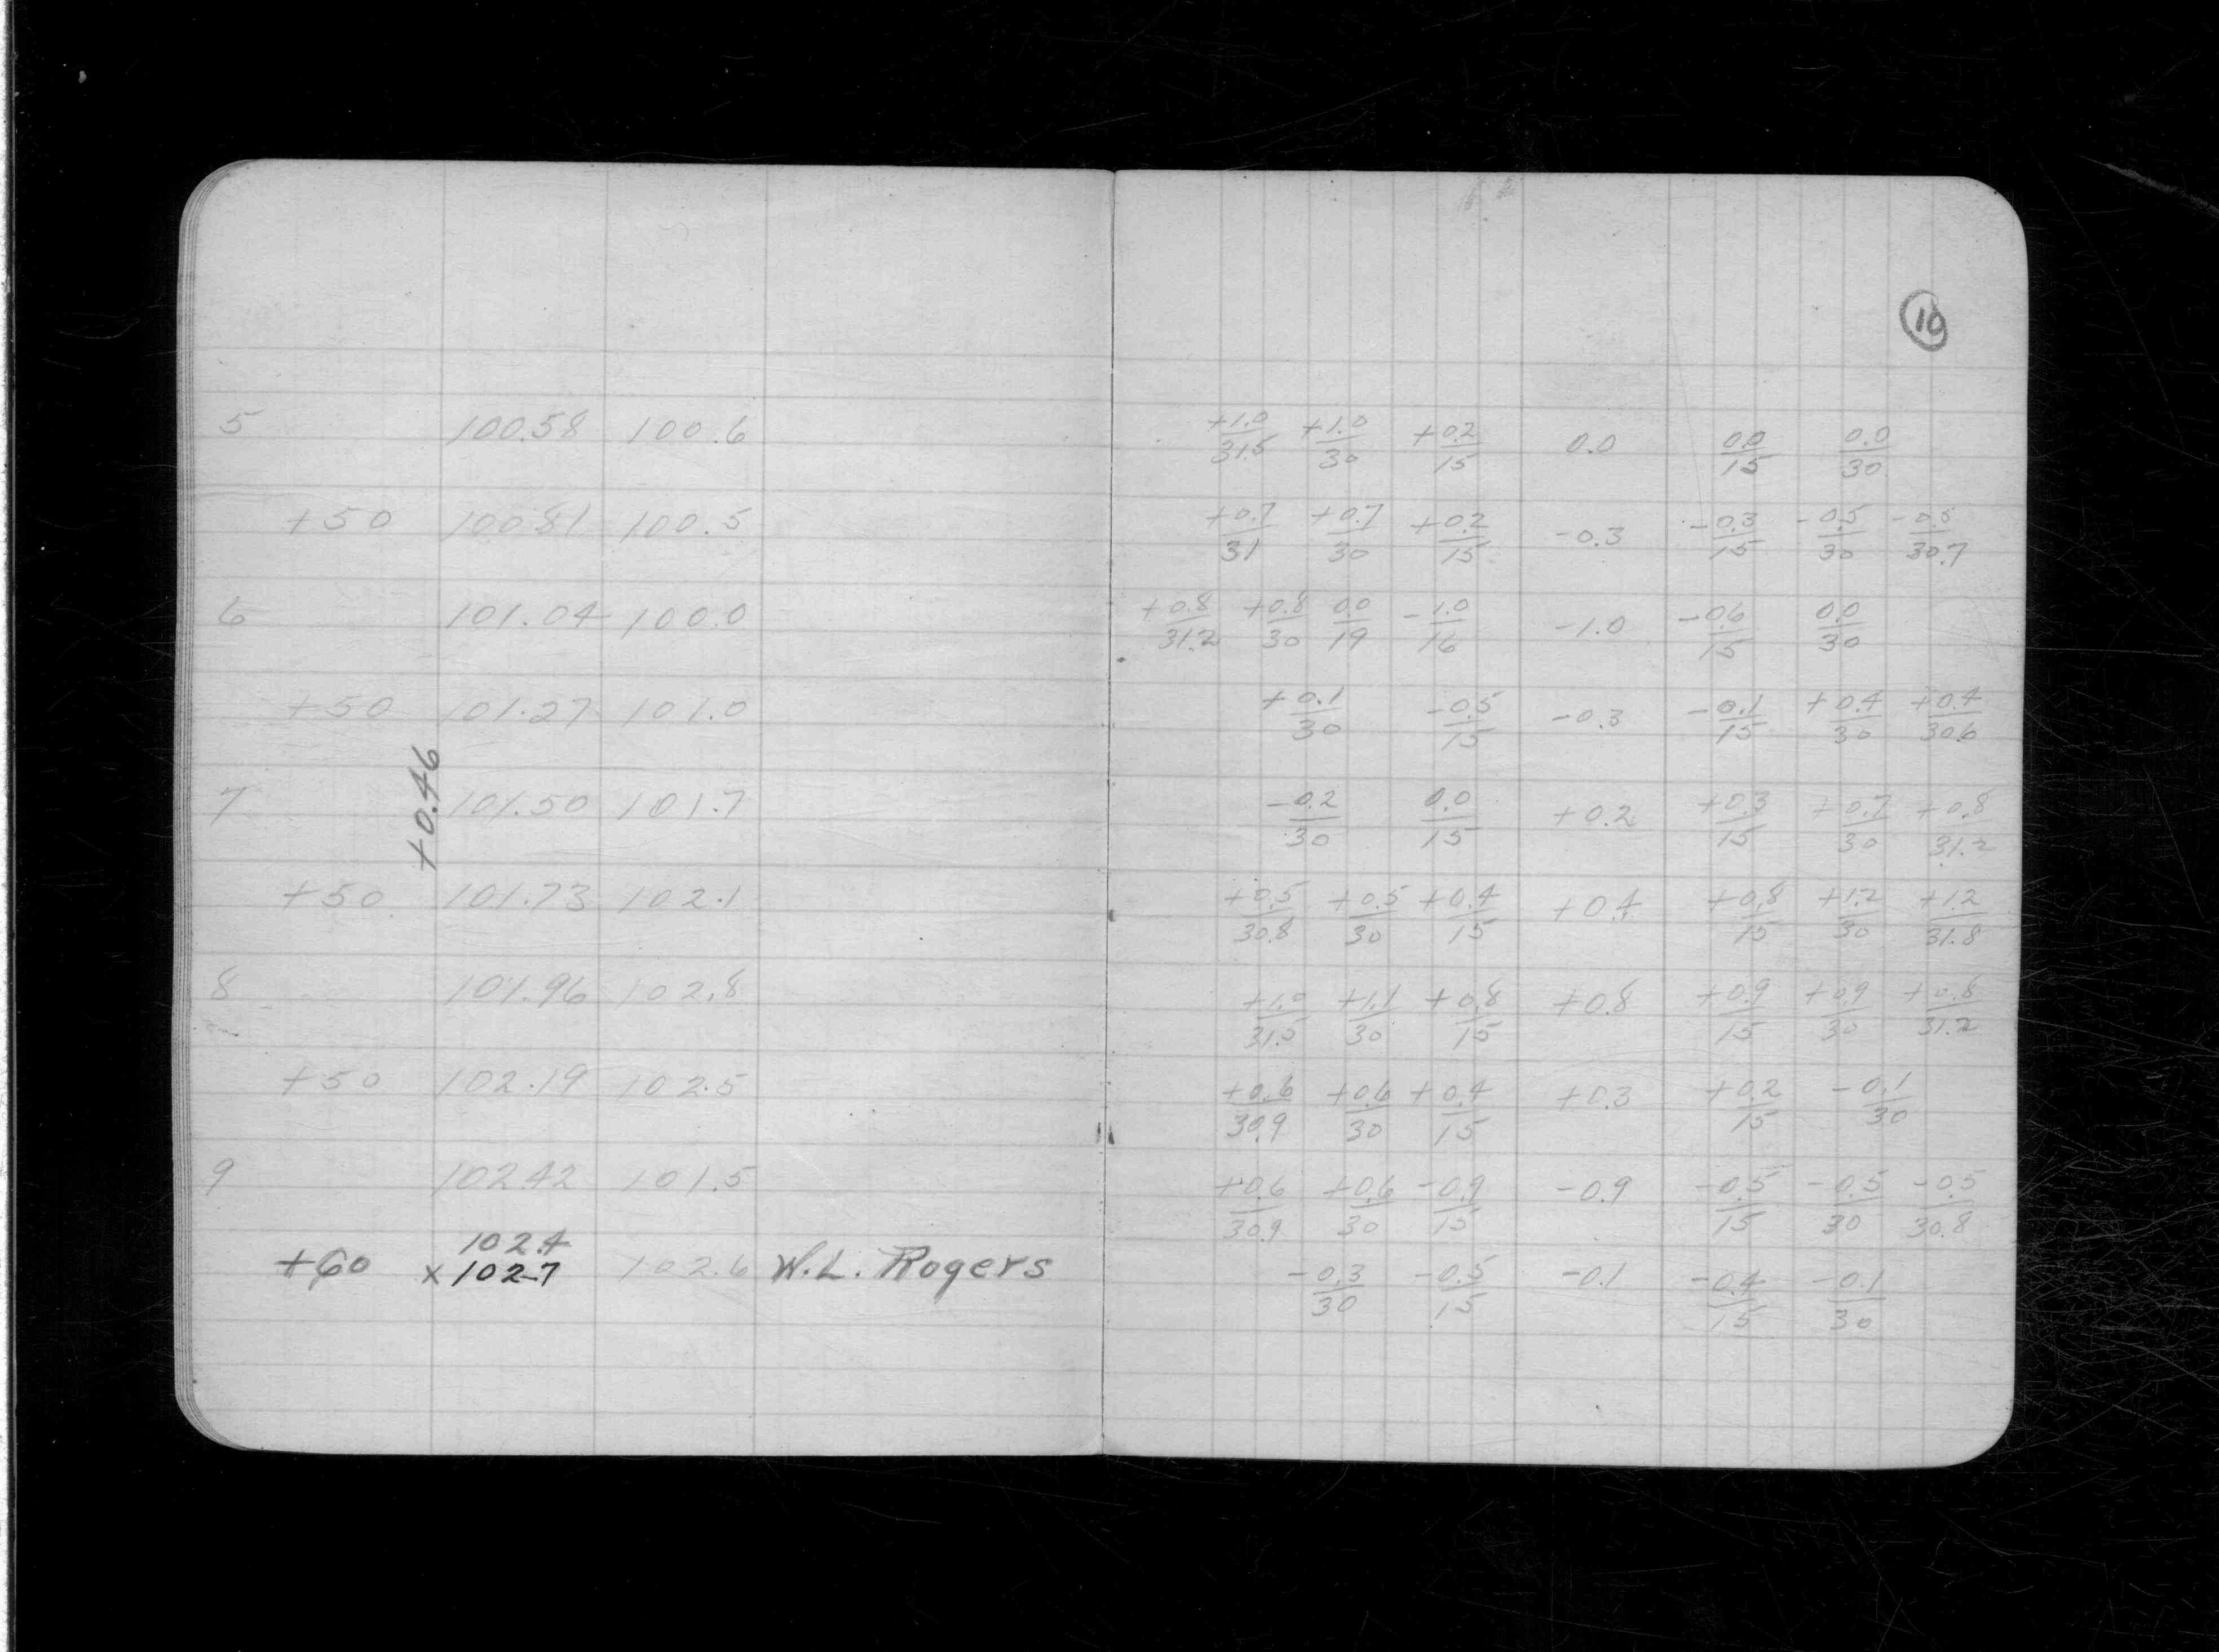 10
5 100.58 100.6 +1.0/31.5 +1.0/30 +0.2/15 0.0 0.0/15 0.0/30
+50 100.81 100.5 +0.7/31 +0.7/30 +0.2/15 -0.3 -0.3/15 -0.5/30 -0.5/30.7
6 101.04 100.0 +0.8/31.2 +0.8/30 0.0/19 -1.0/16 -1.0 -0.6/15 0.0/30
+50 101.27 101.0 +0.1/30 -0.5/15 -0.3 -0.1/15 +0.4/30 +0.4/30.6
+0.46
7 101.50 101.7 -0.2/30 0.0/15 +0.2 +0.3/15 +0.7/30 +0.8/31.2
+50 101.73 102.1 +0.5/30.8 +0.5/30 +0.4/15 +0.4 +0.8/15 +1.2/30 +1.2/31.8
8 101.96 102.8 +1.0/31.5 +1.1/30 +0.8/15 +0.8 +0.9/15 +0.9/30 +0.8/31.2
+50 102.19 102.5 +0.6/30.9 +0.6/30 +0.4/15 +0.3 +0.2/15 -0.1/30
9 102.42 101.5 +0.6/30.9 +0.6/30 -0.9/15 -0.9 -0.5/15 -0.5/30 -0.5/30.8
102.4
+60 x 102.7 102.6 W.L. Rogers -0.3/30 -0.5/15 -0.1 -0.4/15 -0.1/30